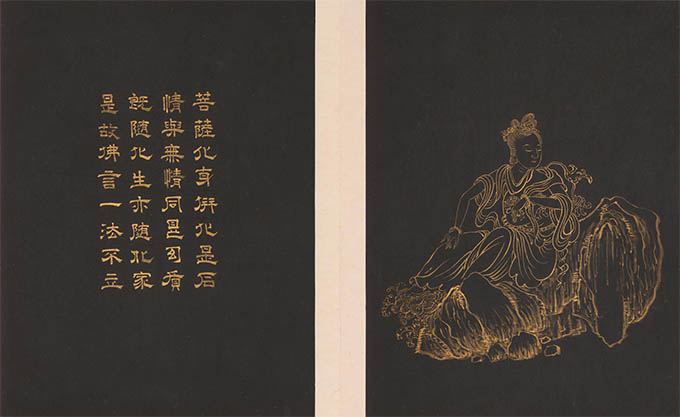 菩薩化身衍化是石
情與無情同是幻質
既隨化生亦隨化寂
是故佛言一法不立